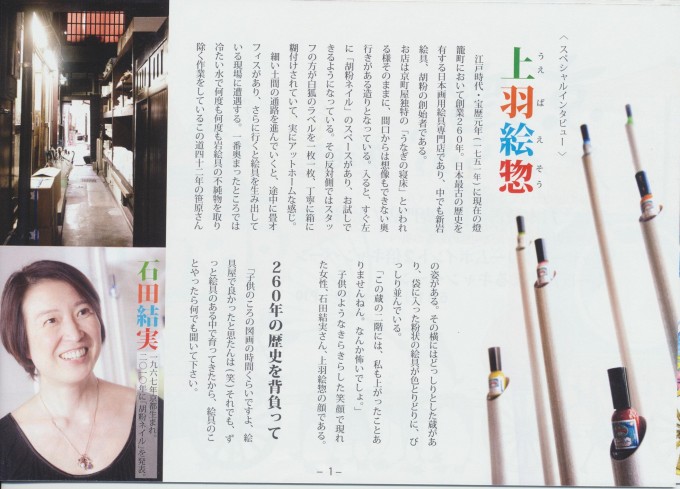 〈スペシャルインタビュー〉
上羽絵惣
うえばえそう
江戸時代・宝暦元年(一七五一年)に現在の燈
籠町において創業260年。日本最古の歴史を
有する日本画用絵具専門店であり、中でも新岩
絵具、胡粉の創始者である。
お店は京町屋独特の「うなぎの寝床」といわれ
る様そのままに、間口からは想像もできない奥
行きがある造りとなっている。入ると、すぐ左
に「胡粉ネイル」のスペースがあり、お試しで
きるようになっている。その反対側ではスタッ
フの方が白狐のラベルを一枚一枚、丁寧に箱に
糊付けされていて、実にアットホームな感じ。
細い土間の通路を進んでいくと、途中に畳オ
フィスがあり、さらに行くと絵具を生み出して
いる現場に遭遇する。一番奥まったところでは
冷たい水で何度も何度も岩絵具の不純物を取り
除く作業をしているこの道四十二年の笹原さん
の姿がある。その横にはどっしりとした蔵があ
り、袋に入った粉状の絵具が色とりどりに、び
っしり並んでいる。
「この蔵の二階には、私も上がったことあ
りませんねん。なんか怖いでしょ。」
子供のようなきらきらした笑顔で現れ
た女性、石田結実さん、上羽絵惣の顔である。
260年の歴史を背負って
「子供のころの図画の時間くらいですよ、絵
具屋で良かったと思たんは(笑)それでも、ず
っと絵具のある中で育ってきたから、絵具のこ
とやったら何でも聞いて下さい。
石田結実
一九六七年京都生まれ
二〇一〇年に「胡粉ネイル」を発表。
－1－